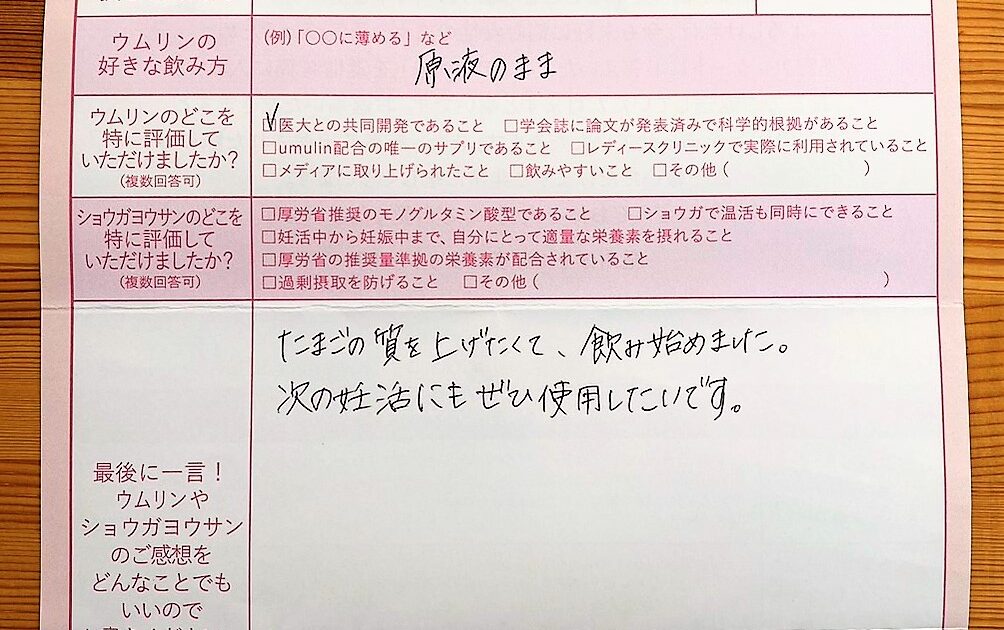 ウムリンの
好きな飲み方
(例)「〇〇に薄める」など
原液のまま
ウムリンのどこを
特に評価して
いただけましたか?
(複数回答可)
☑医大との共同開発であること □学会誌に論文が発表済みで科学的根拠があること
□umulin配合の唯一のサプリであること □レディースクリニックで実際に利用されていること
□メディアに取り上げられたこと □飲みやすいこと □その他 ( )
ショウガヨウサンのどこを
特に評価して
いただけましたか?
(複数回答可)
□厚労省推奨のモノグルタミン酸型であること □ショウガで温活も同時にできること
□妊活中から妊娠中まで、自分にとって適量な栄養素を摂れること
□厚労省の推奨量準拠の栄養素が配合されていること
□過剰摂取を防げること □その他 ( )
最後に一言!
ウムリンや
ショウガヨウサン
のご感想を
どんなことでも
いいので
たまごの質を上げたくて、飲み始めました。
次の妊活にもぜひ使用したいです。